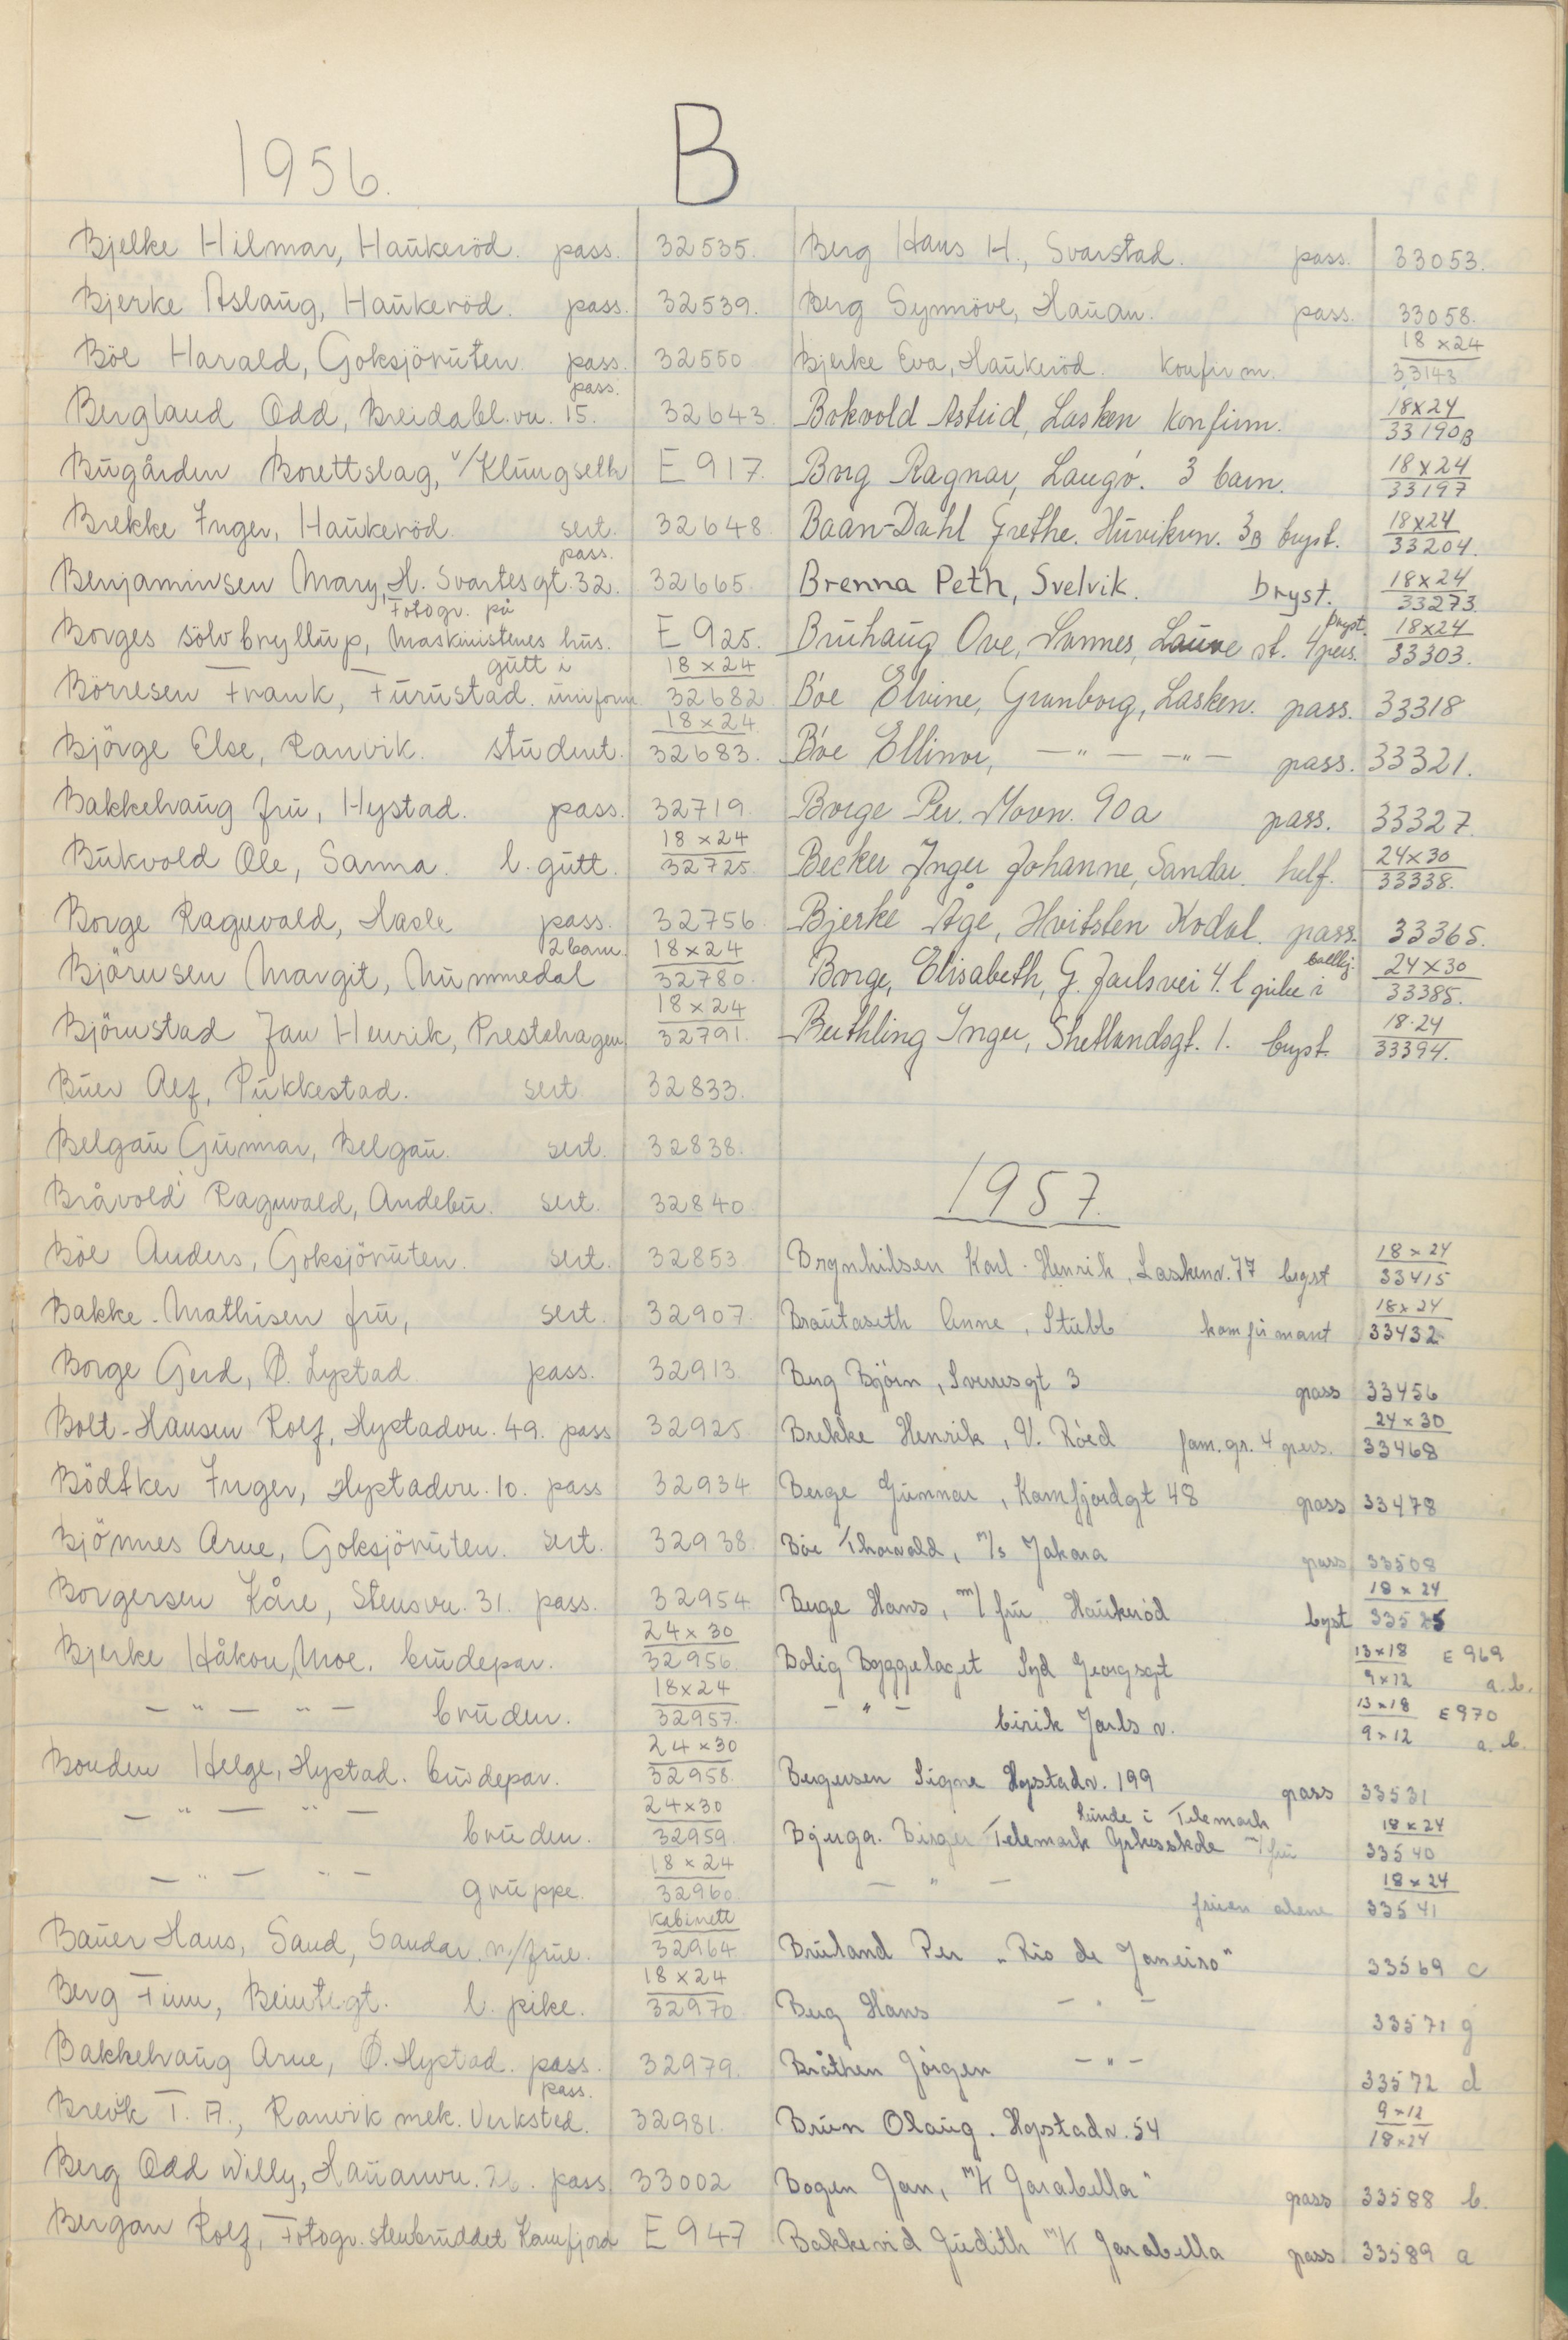 1956.
B
Bjelke Hilmar, Haukeröd. pass. 32535.
Bjerke Aslaug, Haukeröd. pass. 32539.
Böe Harald, Goksjöruten pass. 32550
Bergland Odd, Breidabl.vn. 15. pass. 32643
Bugården Borettslag, v/Klungseth E 917.
Brekke Inger, Haukeröd sert. 32648
Benjaminsen Mary, H. Svartesgt. 32. pass. 32665
Borges sölvbryllup, Fotogr. på Maskinistenes hus. E 925.
Börresen Frank, Furustad. gutt i uniform 18x24 32682
Björge Else, Ranvik. student. 18x24 32683.
Bakkehaug fru, Hystad. pass. 32719.
Bukvold Ole, Sanna. l. gutt. 18x24 32725.
Borge Ragnvald, Hasle pass. 32756
Björnsen Margit, Nummedal 2 barn. 18x24 32780.
Björnstad Jan Henrik, Prestehagen 18x24 32791.
Buer Alf, Pukkestad. sert 32833.
Belgau Gunnar, Belgau. sert. 32838.
Bråvold Ragnvald, Andebu. sert. 32840
Böe Anders, Goksjöruten. sert. 32853
Bakke-Mathisen fru, sert. 32907
Borge Gerd, Ø. Lystad pass. 32913
Bolt-Hansen Rolf, Hystadvn. 49. pass 32925
Bödtker Inger, Hystadvn. 10. pass 32934
Bjönnes Arne, Goksjöruten. sert. 32938
Borgersen Kåre, Stensvn. 31. pass. 32954
Bjerke Håkon, Moe. brudepar. 24x30 32956.
— " — " — bruden. 18x24 32957.
Bonden Helge, Hystad. brudepar. 24x30 32958.
— " — " — bruden. 24x30 32959.
— " — " — gruppe. 18x24 32960
Bauer Hans, Sand, Sandar m/frue. kabinett 32964
Berg Finn, l. pike. 18x24 32970
Bakkehaug Arne, Ø. Hystad. pass. 32979.
Brevik T. A., Ranvik mek. Verksted. pass. 32981
Berg Odd Willy, Hauanvn. pass 33002
Bergan Rolf, Fotogr. stenbruddet Kamfjord E 947
Berg Hans H., Svarstad. pass. 33053.
Berg Synnöve, Hauan. pass. 33058.
Bjerke Eva, Haukeröd. Konfirm. 18x24 33143
Bokvold Astrid, Lasken Konfirm. 18x24 33190B
Borg Ragnar, Langö. 3 barn. 18x24 33197
Baan-Dahl Grethe. Huvikvn. 3B bryst. 18x24 33204.
Brenna Peth, Svelvik. bryst. 18x24 33273.
Bruhaug Ove, Sannes, Lauve st. 4 pers. bryst. 18x24 33303.
Böe Elvine, Granborg, Lasken. pass. 33318
Böe Ellinor, — " — — " — pass. 33321.
Borge Per. Movn. 90a pass. 33327.
Becker Inger Johanne, Sandar. helf. 24x30 33338.
Bjerke Åge, Hvitsten Kodal. pass. 33365.
Borge, Elisabeth, G. Jarlsvei 4. l. pike i ballkj. 24x30 33385.
Berthling Inger, Shetlandsgt. 1. bryst 18·24 33394.
1957.
Brynhilsen Karl-Henrik, Laskenv. 77 bryst 18x24 33415
Brautaseth Anne, Stubb konfirmant 18x24 33432
Berg Björn, Sverresgt 3 pass 33456
Brekke Henrik, V. Röed fam.gr. 4 pers. 24x30 33468
Berge Gunnar, Kamfjordgt 48 pass 33478
Böe Thorvald, M/s Jakara pass 33508
Berge Hans, m/ fru Haukeröd bryst 18x24 33525
Bolig Byggelaget Syd Georgsgt 13x18 9x12 E 969 a.b.
— " — Eirik Jarls v. 13x18 9x12 E 970 a.b.
Bergersen Signe Hystadv. 199 pass 33531
Bjurga. Birger Telemark Yrkesskole m/fru kunde i Telemark 18x24 33540
— " — fruen alene 18x24 33541
Bruland Per "Rio de Janeiro" 33569 c
Berg Hans — " — 33571 g
Bråthen Jörgen — " — 33572 d
Brun Olaug. Hystadv. 54 9x12 18x24
Bogen Jan, M/T Jarabella" pass 33588 b.
Bakkevid Judith M/T Jarabella pass 33589 a